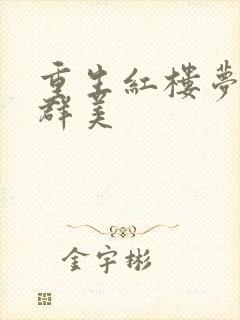 重生紅樓夢
群美
金宇彬